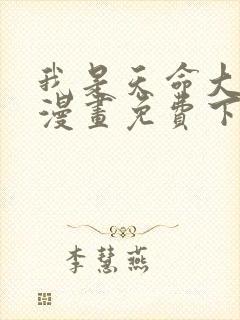 我是天命大
漫畫免費下
李慧燕